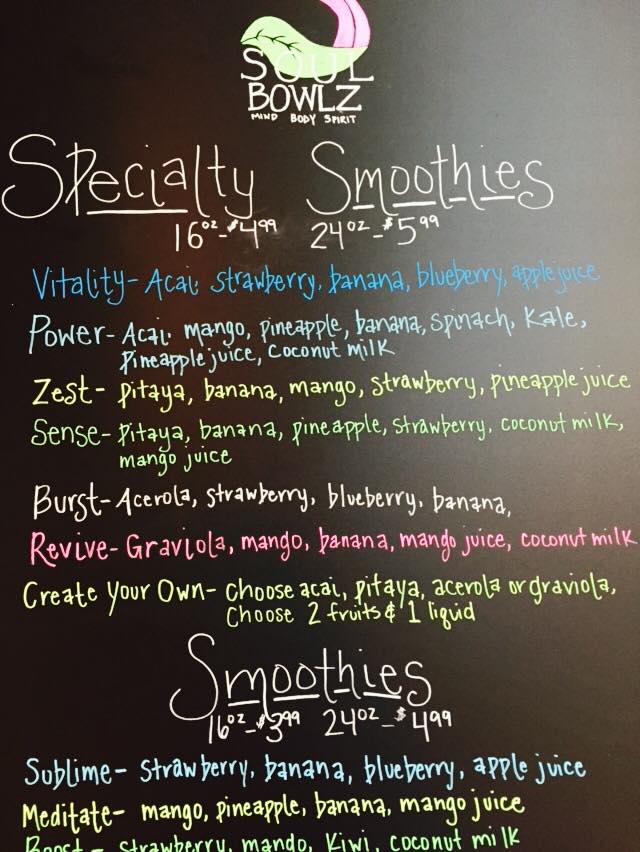 SOUL
BOWLZ
MIND BODY SPIRIT
Specialty Smoothies
16oz-$4.99 24oz-$5.99
Vitality- Acai, strawberry, banana, blueberry, apple juice
Power- Acai, mango, pineapple, banana, spinach, Kale,
pineapple juice, coconut milk
Zest- pitaya, banana, mango, strawberry, pineapple juice
Sense- pitaya, banana, pineapple, strawberry, coconut milk,
mango juice
Burst- Acerola, strawberry, blueberry, banana,
Revive- Graviola, mango, banana, mango juice, coconut milk
Create Your Own- choose acai, pitaya, acerola or graviola,
Choose 2 fruits & 1 liquid
Smoothies
16oz-$3.99 24oz-$4.99
Sublime- strawberry, banana, blueberry, apple juice
Meditate- mango, pineapple, banana, mango juice
Boost- strawberry, mando, Kiwi, coconut milk